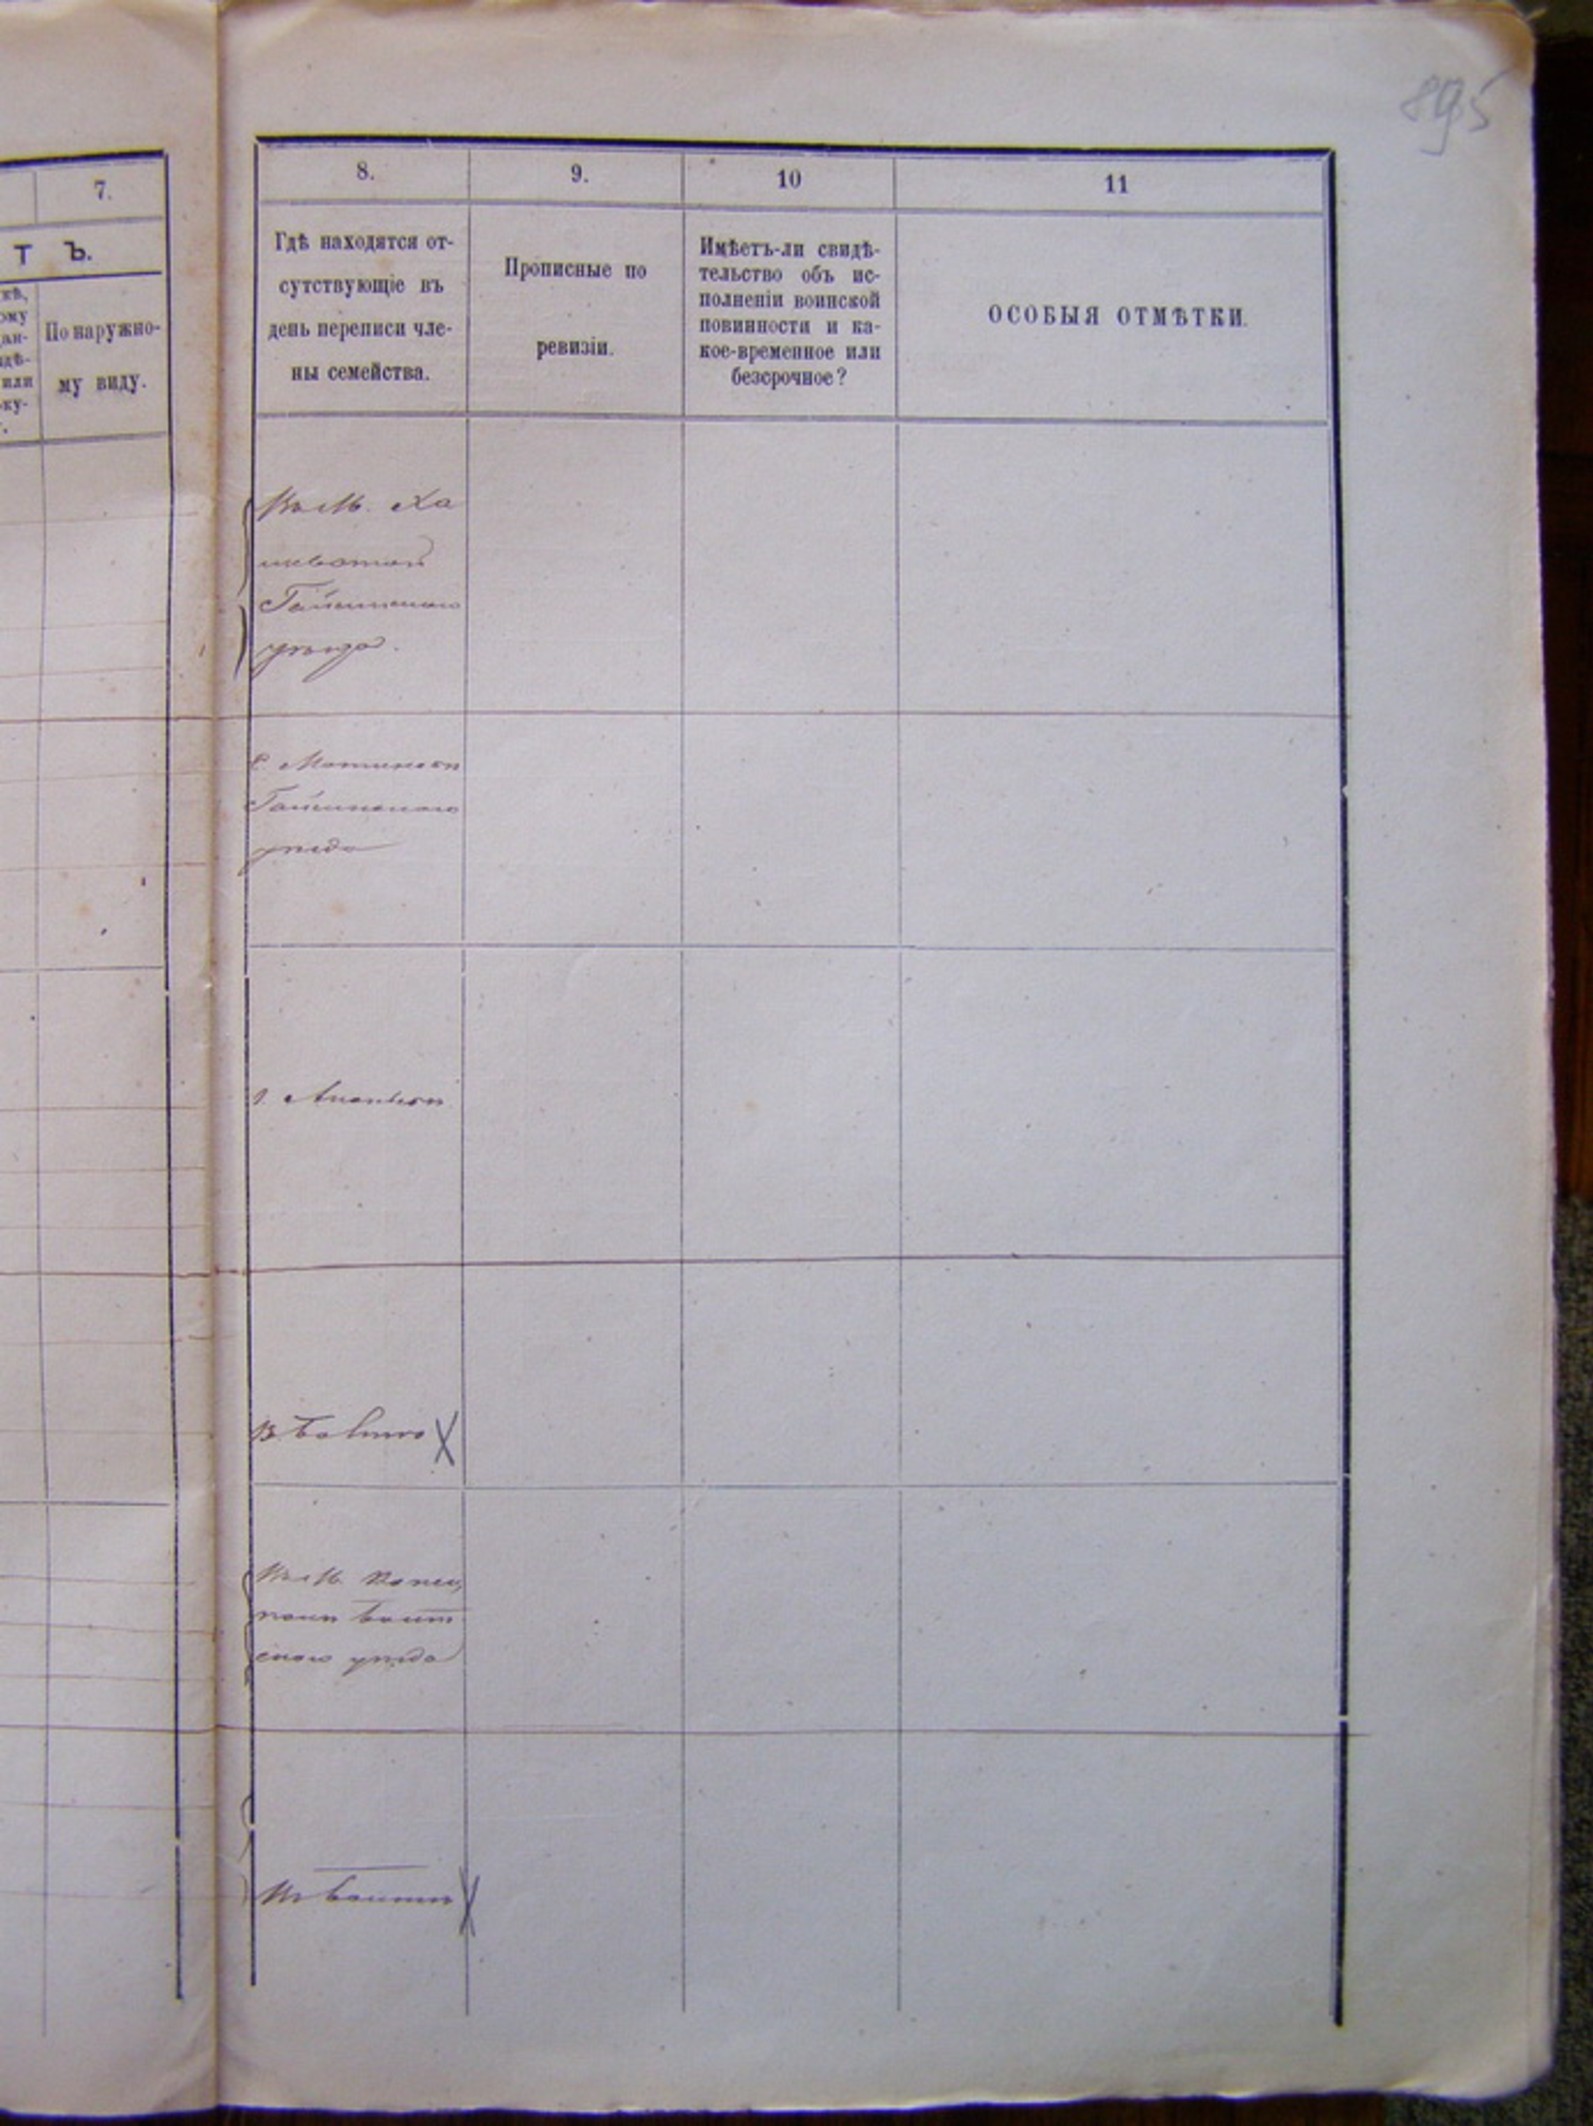 895
7.
Т Ъ.
По наружно-
му виду.
8.
Гдѣ находятся от-
сутствующіе въ
день переписи чле-
ны семейства.
9.
Прописные по
ревизіи.
10
Имѣетъ-ли свидѣ-
тельство объ ис-
полненіи воинской
повинности и ка-
кое-временное или
безсрочное?
11
ОСОБЫЯ ОТМѢТКИ.
Въ М. Ха
щеватой
Гайсинскаго
уѣзда.
Гайсинскаго
уѣзда
г. Ананьевъ
скаго уѣзда